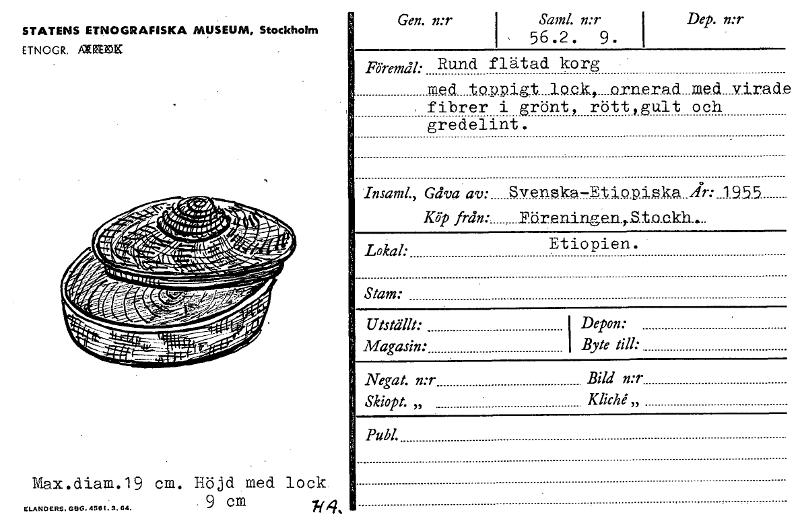 STATENS ETNOGRAFISKA MUSEUM, Stockholm
ETNOGR.
Max.diam.19 cm. Höjd med lock
9 cm
HA.
ELANDERS, GBG. 4561. 3. 64.
Gen. n:r
Saml. n:r
Dep. n:r
56.2. 9.
Föremål: Rund flätad korg
med toppigt lock, ornerad med virade
fibrer i grönt, rött,gult och
gredelint.
Insaml., Gåva av: Svenska-Etiopiska År: 1955
Köp från: Föreningen,Stockh.
Lokal: Etiopien.
Stam:
Utställt: Depon:
Magasin: Byte till:
Negat. n:r Bild n:r
Skiopt. „ Kliché „
Publ.